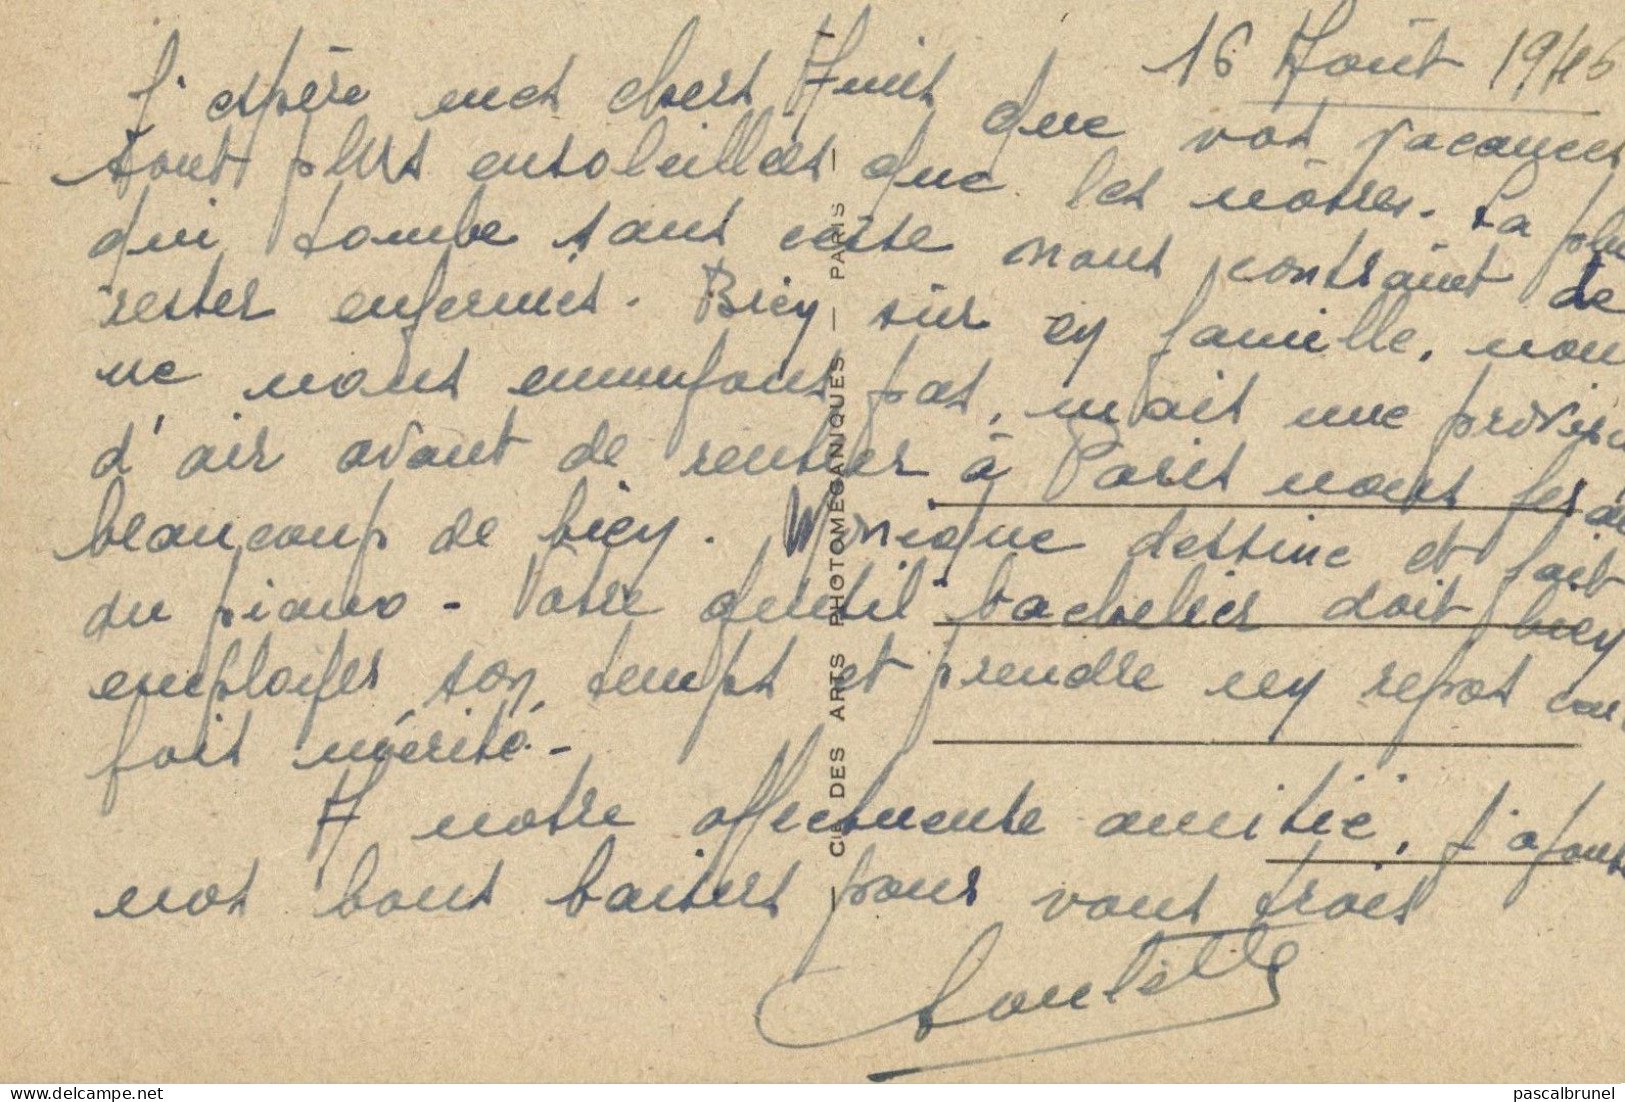 16 Août 1946
J'espère mes chers Amis que vos vacances
sont plus ensoleillées que les nôtres. La plu
qui tombe sans cesse nous contraint de
rester enfermés. Bien sûr en famille, nou
ne nous ennuyons pas, mais une provisi
d'air avant de rentrer à Paris nous fera
beaucoup de bien. Monique dessine et fait
du piano - Votre gentil bachelier doit bien
employer son temps et prendre un repos
fois mérité -
A notre affectueuse amitié, j'ajoute
nos bons baisers pour vous trois
— CIE DES ARTS PHOTOMECANIQUES — PARIS —
delcampe.net
pascalbrunel